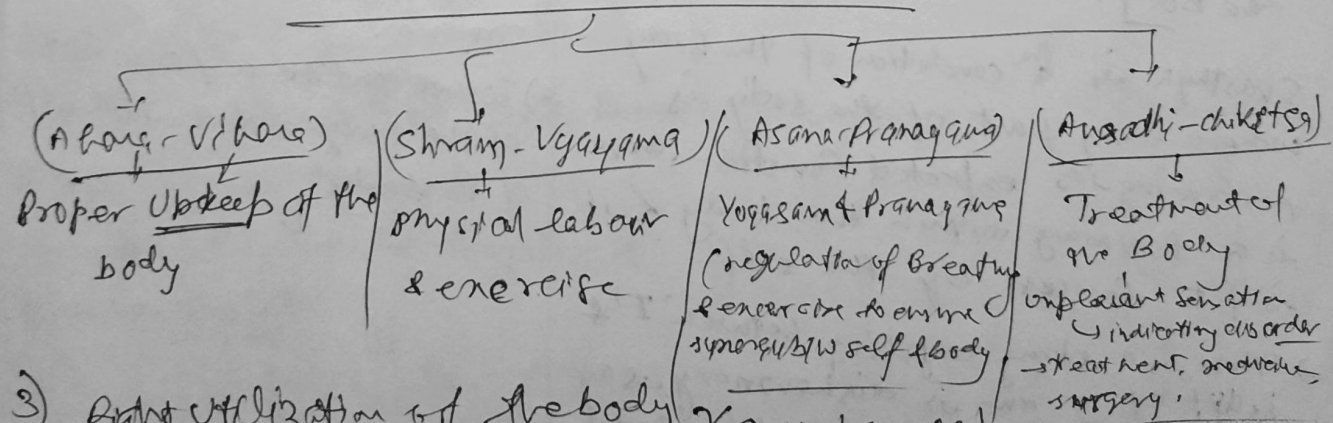 (Ahara-Vihara)
Proper Upkeep of the
body
(Shram-Vyayama)
physical labour
& exercise.
(Asana-Pranayama)
Yogasana & Pranayama
(regulation of Breathing
& exercise to ensure
synergy b/w self & body
(Ausadhi-chikitsa)
Treatment of
the Body
unpleasant Sensation
↳ indicating disorder
→ treatment, medicine,
surgery.
3) Right Utilization of the body